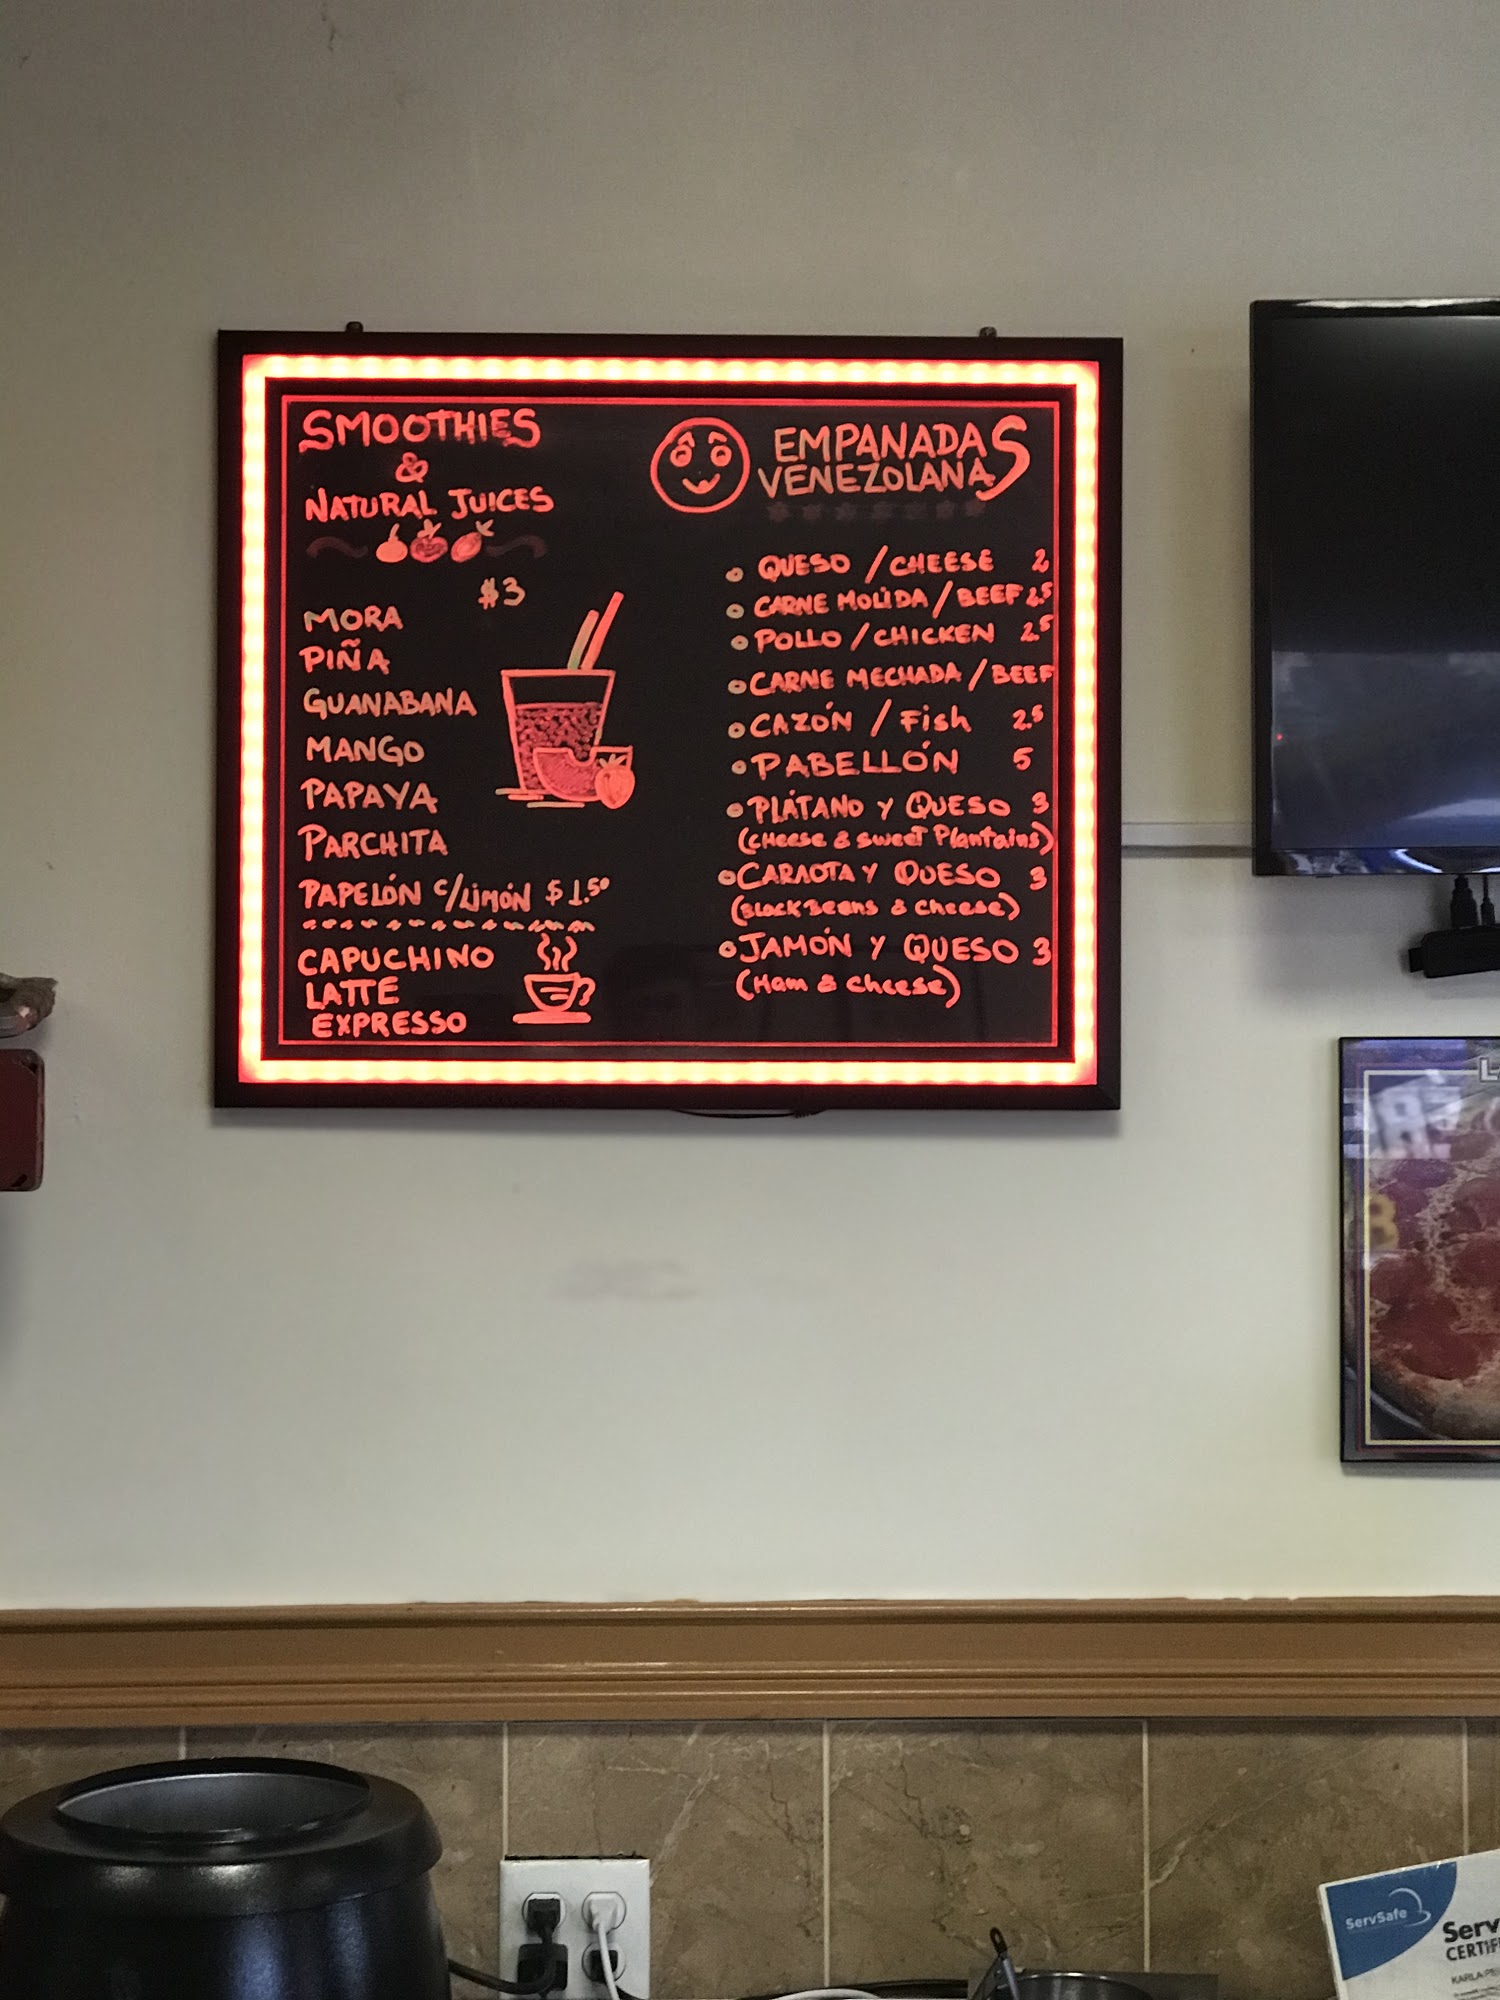 SMOOTHIES
&
NATURAL JUICES
$3
MORA
PIÑA
GUANABANA
MANGO
PAPAYA
PARCHITA
PAPELÓN C/LIMÓN $1.50
CAPUCHINO
LATTE
EXPRESSO
EMPANADAS
VENEZOLANAS
QUESO / CHEESE 2
CARNE MOLIDA / BEEF 2.5
POLLO / CHICKEN 2.5
CARNE MECHADA / BEEF
CAZÓN / Fish 2.5
PABELLÓN 5
PLÁTANO Y QUESO 3
(CHeese & Sweet Plantains)
CARAOTA Y QUESO 3
(BLack Beans & Cheese)
JAMÓN Y QUESO 3
(Ham & cheese)
ServSafe
CERTIF